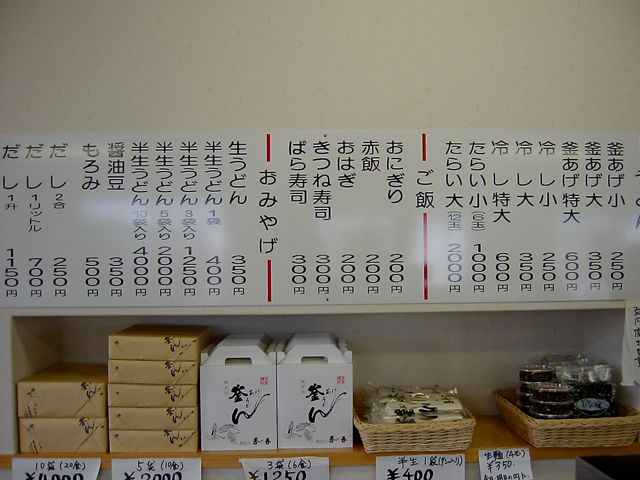 釜あげ小 250円
釜あげ大 350円
釜あげ特大 600円
冷し小 250円
冷し大 350円
冷し特大 600円
たらい小(6玉) 1000円
たらい大(12玉) 2000円
ご飯
おにぎり 200円
赤飯 200円
おはぎ 200円
きつね寿司 300円
ばら寿司 300円
おみやげ
生うどん 350円
半生うどん1袋 400円
半生うどん3袋入り 1250円
半生うどん5袋入り 2000円
半生うどん10袋入り 4000円
醤油豆 350円
もろみ 500円
だし2合 250円
だし1リットル 700円
だし1升 1150円
釜あげうどん
釜あげうどん
10袋(20食)
¥4000
5袋(10食)
¥2000
3袋(6食)
¥1250
半生1袋
¥400
生麺
¥350.